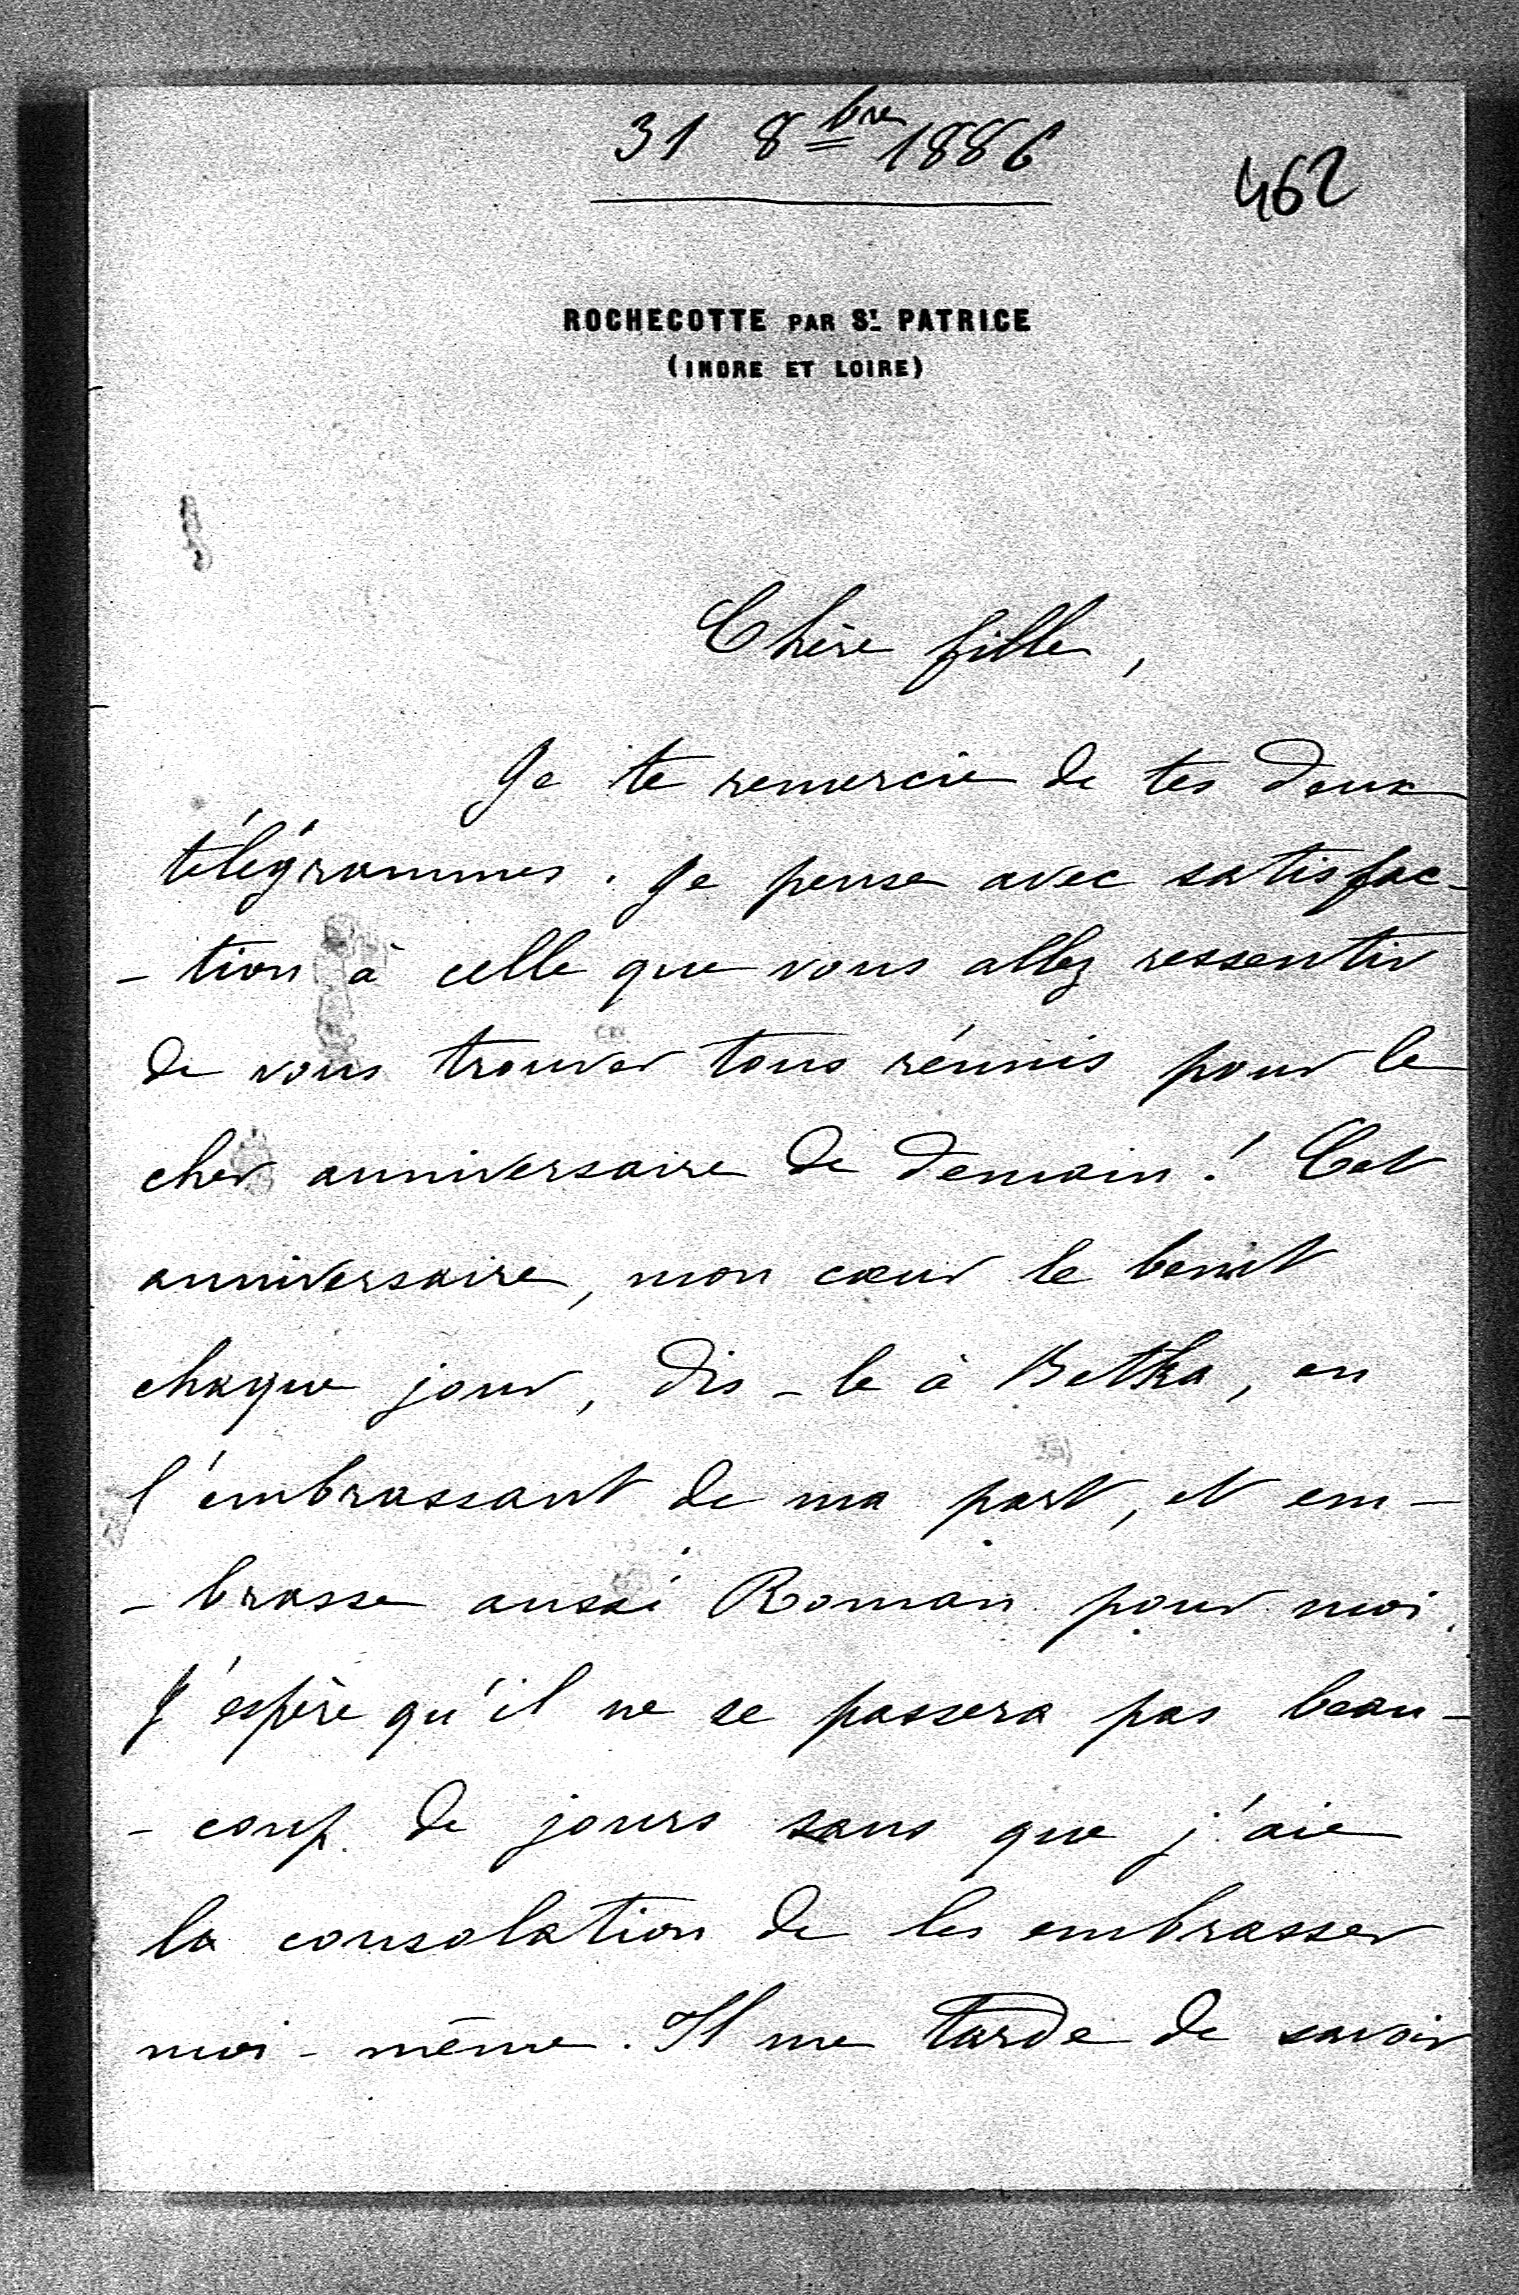 31 8bre 1886
462
ROCHECOTTE PAR ST PATRICE
(INDRE ET LOIRE)
Chère fille,
Je te remercie de tes deux
télégrammes. Je pense avec satisfac-
- tion à celle que vous allez ressentir
de vous trouver tous réunis pour le
cher anniversaire de demain! Cet
anniversaire, mon cœur le benit
chaque jour, dis-le à Betka, en
l'embrassant de ma part, et em-
- brasse aussi Roman pour moi.
J'espère qu'il ne se passera pas beau-
- coup de jours sans que j'aie
la consolation de les embrasser
moi-même. Il me tarde de savoir